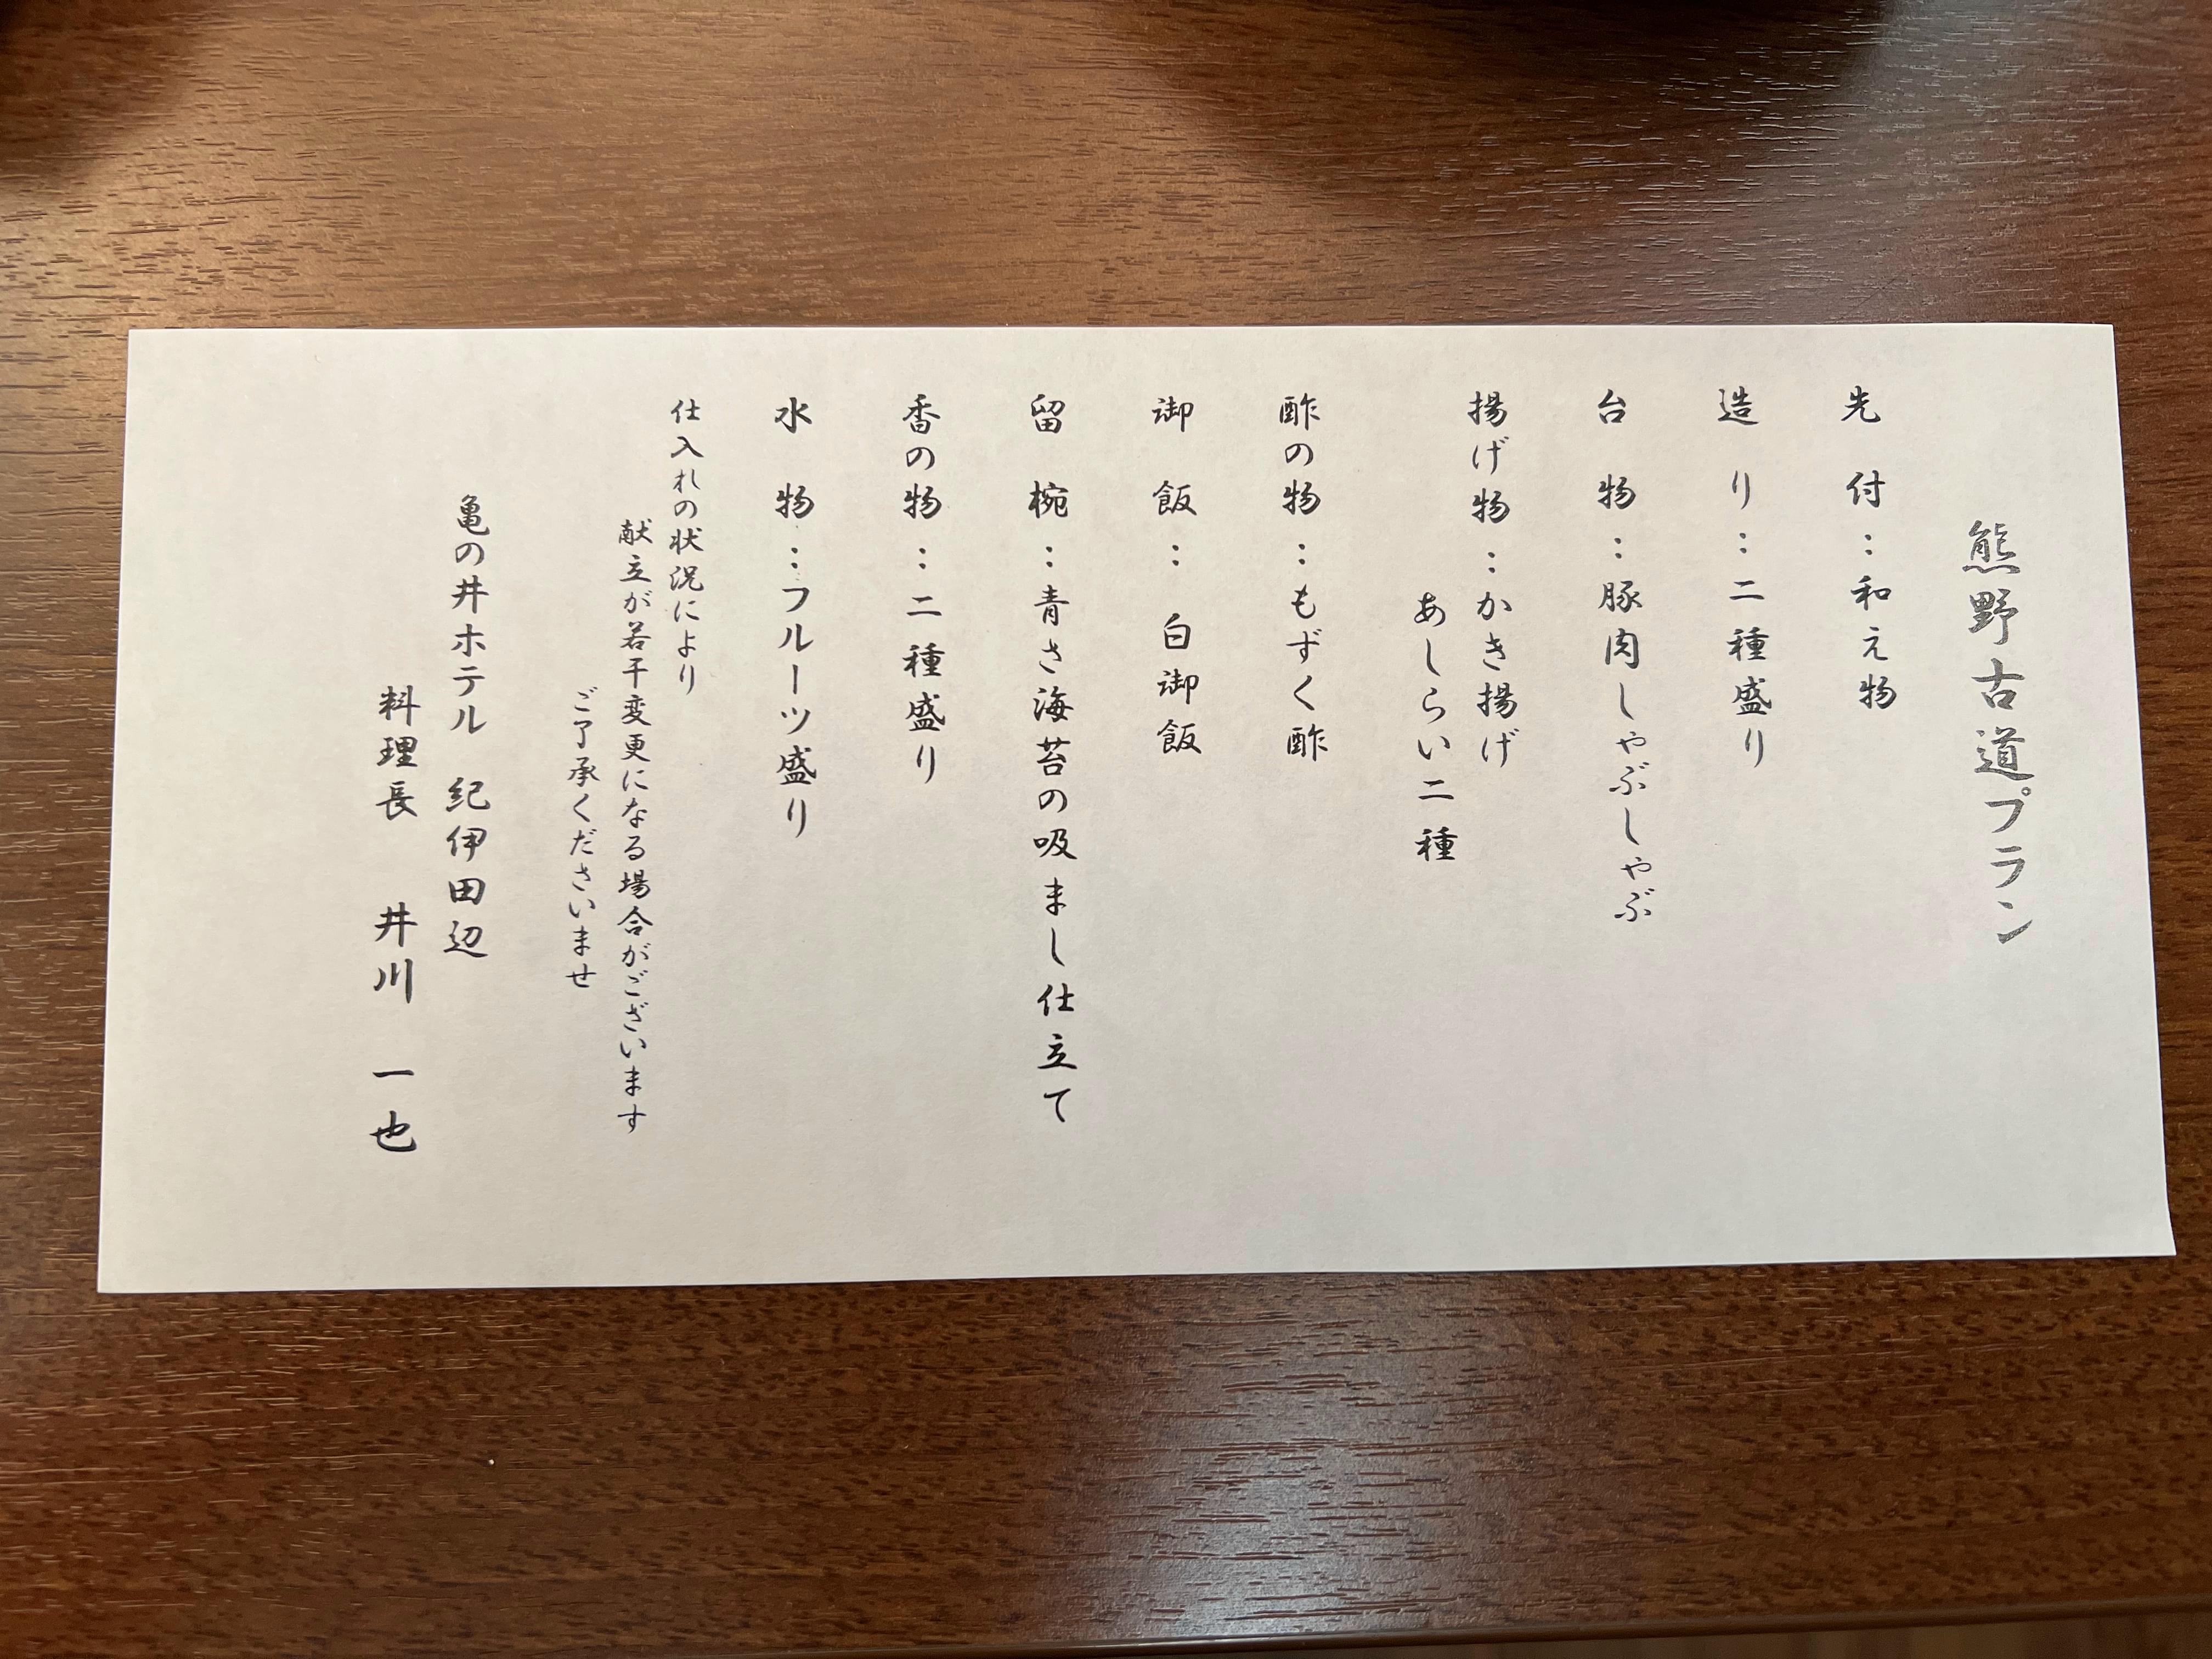 熊野古道プラン
先 付：和え物
造 り：二種盛り
台 物：豚肉しゃぶしゃぶ
揚げ物：かき揚げ
あしらい二種
酢の物：もずく酢
御 飯： 白御飯
留 椀：青さ海苔の吸まし仕立て
香の物：二種盛り
水 物：フルーツ盛り
仕入れの状況により
献立が若干変更になる場合がございます
ご了承くださいませ
亀の井ホテル 紀伊田辺
料理長 井川 一也